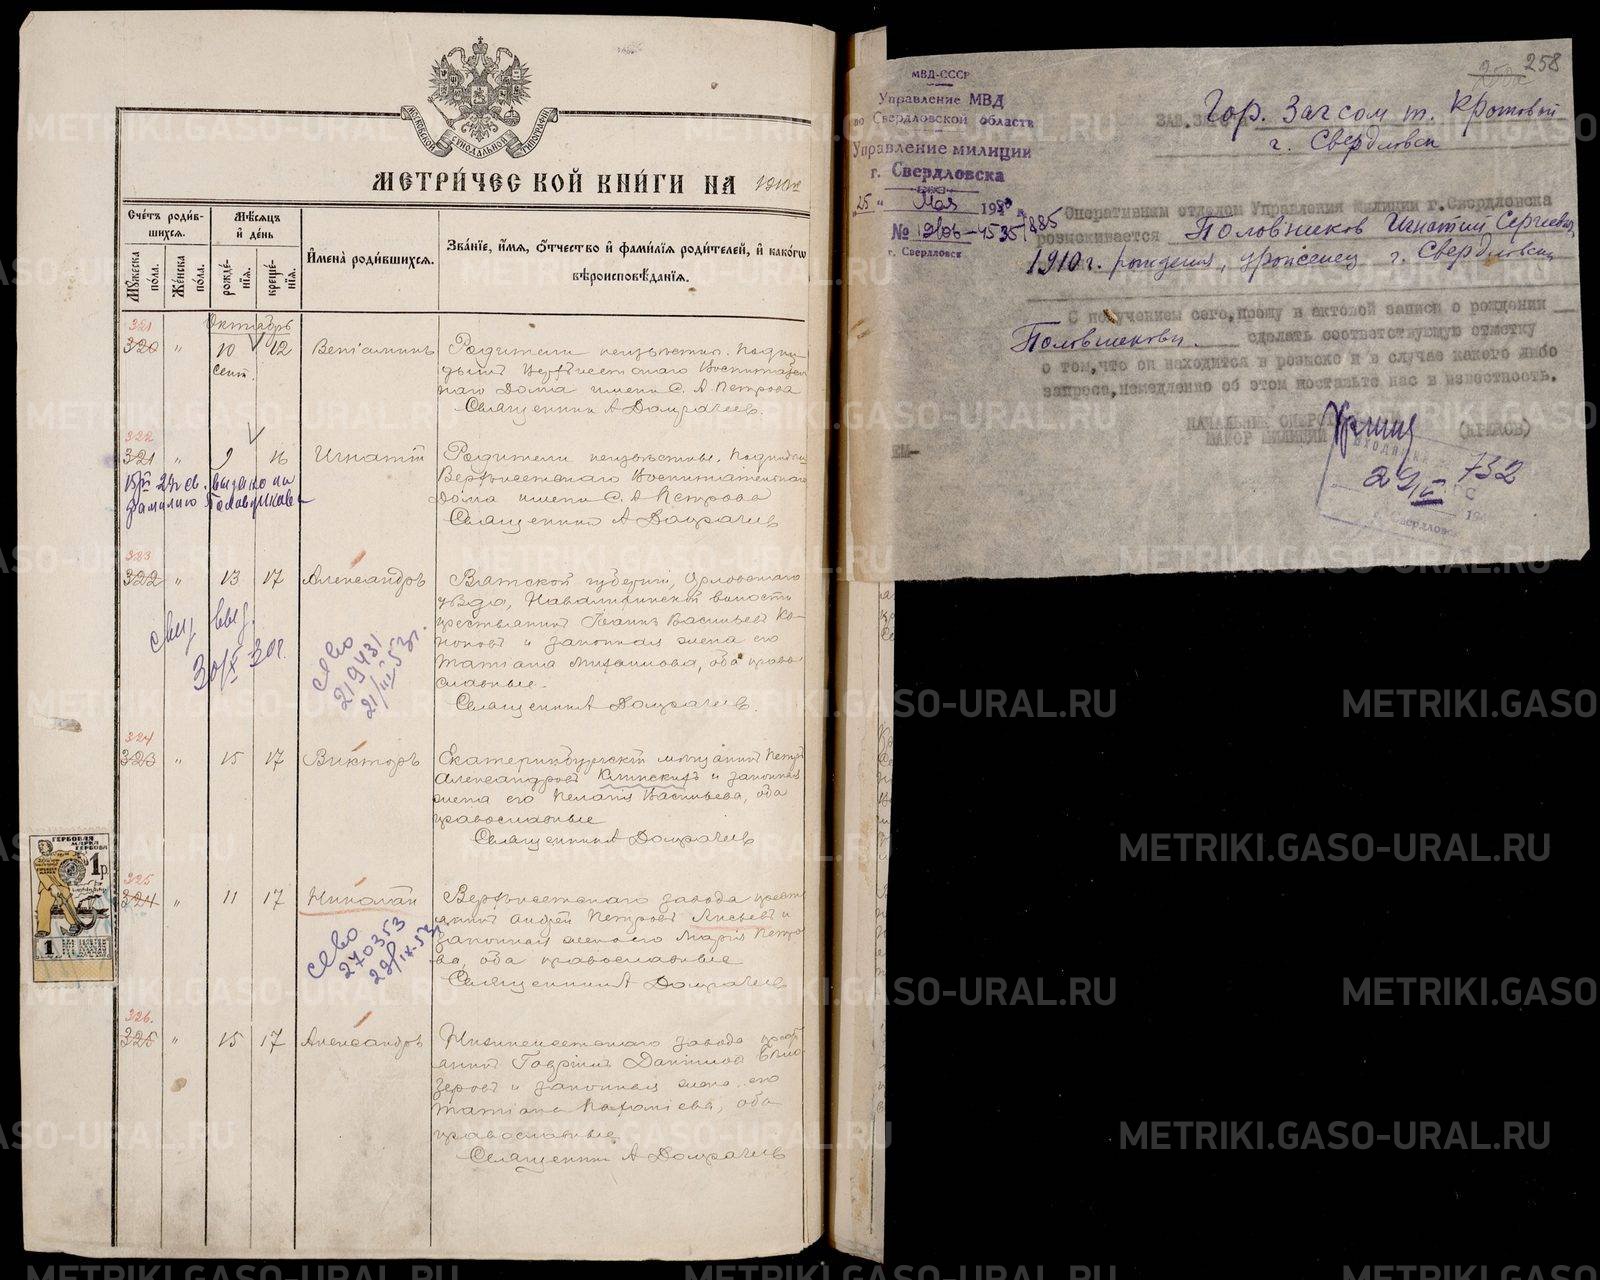 МОСКОВСКОЙ СѴНОДАЛЬНОЙ ТИПОГРАФІИ
МЕТРИ́ЧЕСКОЙ КНИ́ГИ НА 1910 г.
Сче́тъ роди́вшихся.
Му́жеска пола.
Же́нска по́ла.
Мѣ́сяцъ и҆ де́нь
рожде́нїѧ.
креще́нїѧ.
И҆мена̀ роди́вшихся.
Зва́нїе, и҆́мѧ, ѻ҆́тчество и҆ фами́лїѧ роди́телей, и҆ како́гѡ вѣроисповѣ́данїѧ.
Октябрь
321
320 " 10 12 Веніаминъ
Сент.
Родители неизвѣстны. Подки-
дышъ Верхъисетскаго Воспитатель-
наго Дома имени С. А Петрова
Священникъ А Домрачевъ.
322
321 " 9 16 Игнатій
Родители неизвѣстны. Подкидыш
Верхъисетскаго Воспитательнаго
Дома имени С. А Петрова
Священникъ А Домрачевъ
выдано на
фамилию Половникова
323
322 " 13 17 Александръ
Вятской губерніи, Орловскаго
уѣзда, волости
крестьянинъ Іоаннъ Васильевъ Ко-
и законная жена его
Татіана Михаилова, оба право-
славные.
Священникъ А Домрачевъ.
свид. выд.
30/X 30г.
219431
21/III-53г.
324
323 " 15 17 Викторъ
Екатеринбургскій мѣщанинъ Петръ
Александровъ Клинскихъ и законная
жена его Пелагія Васильева, оба
православные
Священникъ А Домрачевъ
325
324 " 11 17 Николай
Верхъисетскаго завода кресть-
янинъ Андрей Петровъ Лисьевъ и
законная жена его Марія Петро-
ва, оба православные
Священникъ А Домрачевъ
270353
22/IX-53г.
326.
325 " 15 17 Александръ
Нижнеисетскаго завода кресть-
янинъ Гавріилъ Даніиловъ Бѣло-
зеровъ и законная жена его
Татіана, оба
православные
Священникъ А Домрачевъ
ГЕРБОВАЯ
МАРКА
1 р.
1
258
МВД-СССР
Управление МВД
по Свердловской области
Управление милиции
г. Свердловска
"25" Мая 19
№
г. Свердловск
ЗАВ. ЗАГС Гор. Загсом т. Кротовой
г. Свердловск
Оперативным отделом Управления Милиции г. Свердловска
розыскивается Половников Игнатий Сергеевич,
1910 г. рождения, уроженец г. Свердловска
С получением сего, прошу в актовой записи о рождении
Половникова сделать соответствующую отметку
о том, что он находится в розыске и в случае какого либо
запроса, немедленно об этом поставьте нас в известность.
НАЧАЛЬНИК
МАЙОР МИЛИЦИИ
732
г. Свердловск
METRIKI.GASO-URAL.RU